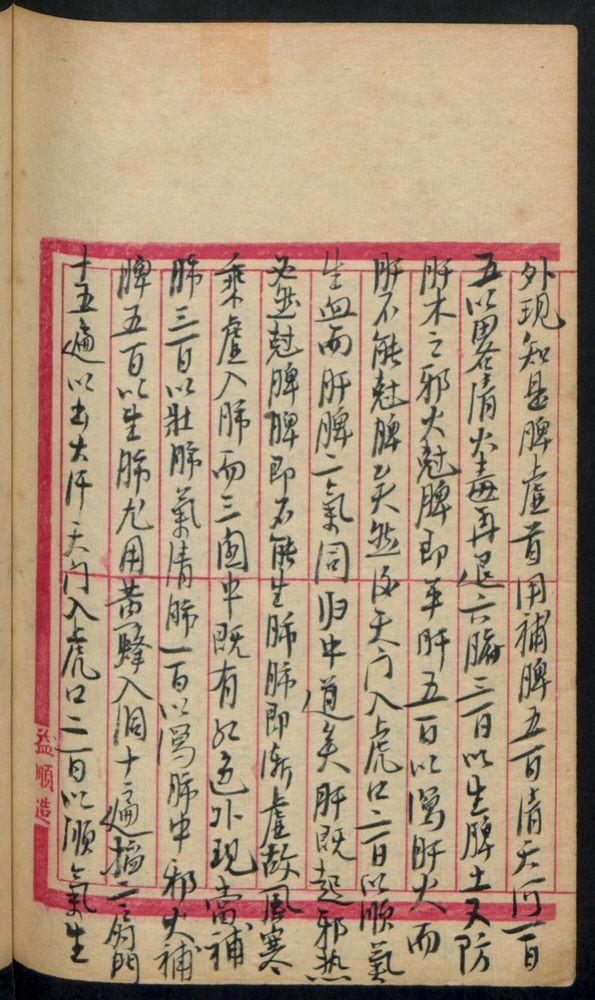 外现知是脾虚首用補脾五百清天河一百
五以畧清火毒再退六腑三百以生脾土又防
肝木之邪火尅脾即平肝五百以瀉肝火而
肝不能尅脾矣然後天门入虎口二百以順氣
生血而肝脾二氣同归中道矣肝既起邪热
必然尅脾脾即不能生肺肺即漸虚故風寒
乘虚入肺而三関中既有红色外现當補
肺三百以壯肺氣清肺一百以瀉肺中邪火補
脾五百以生肺尤用黄蜂入洞十遍掐二扇門
十五遍以出大汗天门入虎口二百以順氣生
益順造